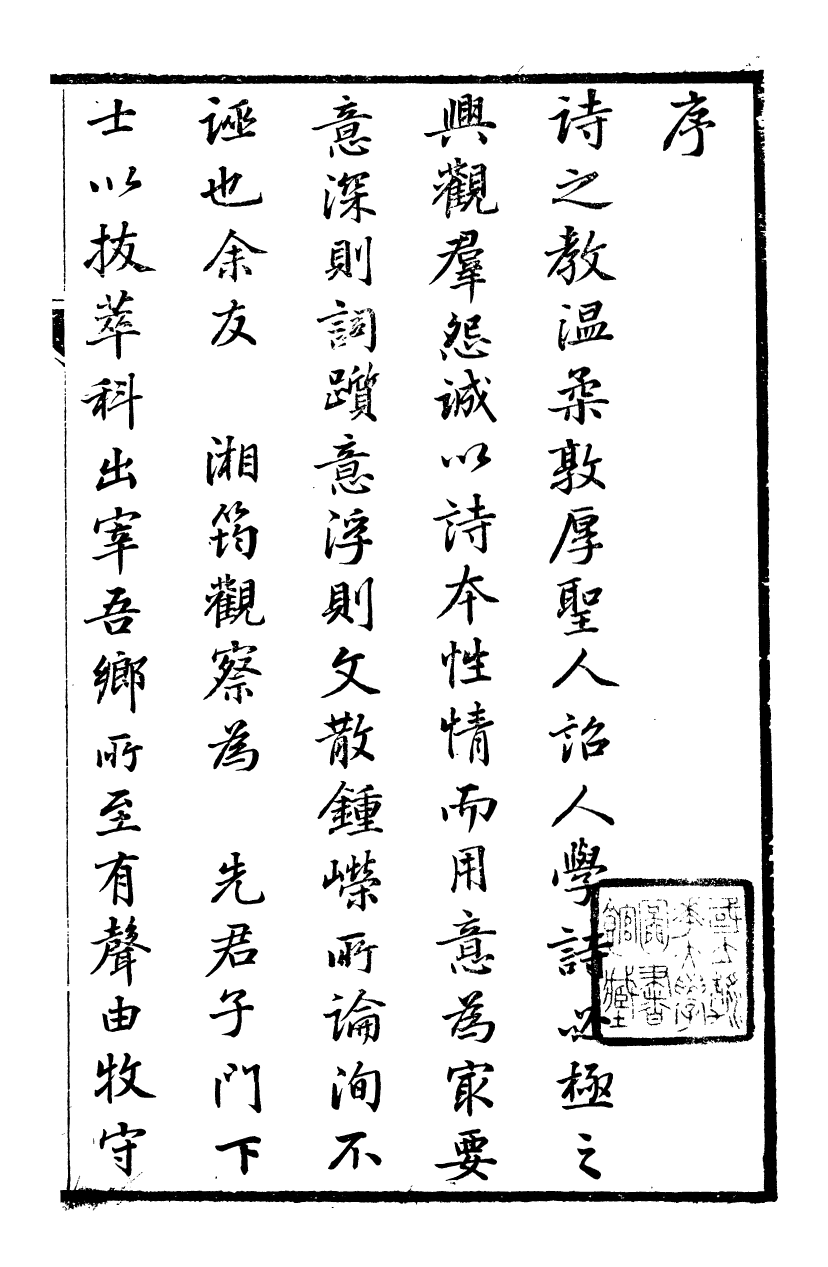 序
詩之教温柔敦厚聖人詔人學詩必極之
興觀羣怨誠以詩本性情而用意為冣要
意深則詞躓意浮則文散鍾嶸所論洵不
誣也余友　湘筠觀察為　先君子門下
士以拔萃科出宰吾鄉所至有聲由牧守
國立清
華大學
圖書
館藏